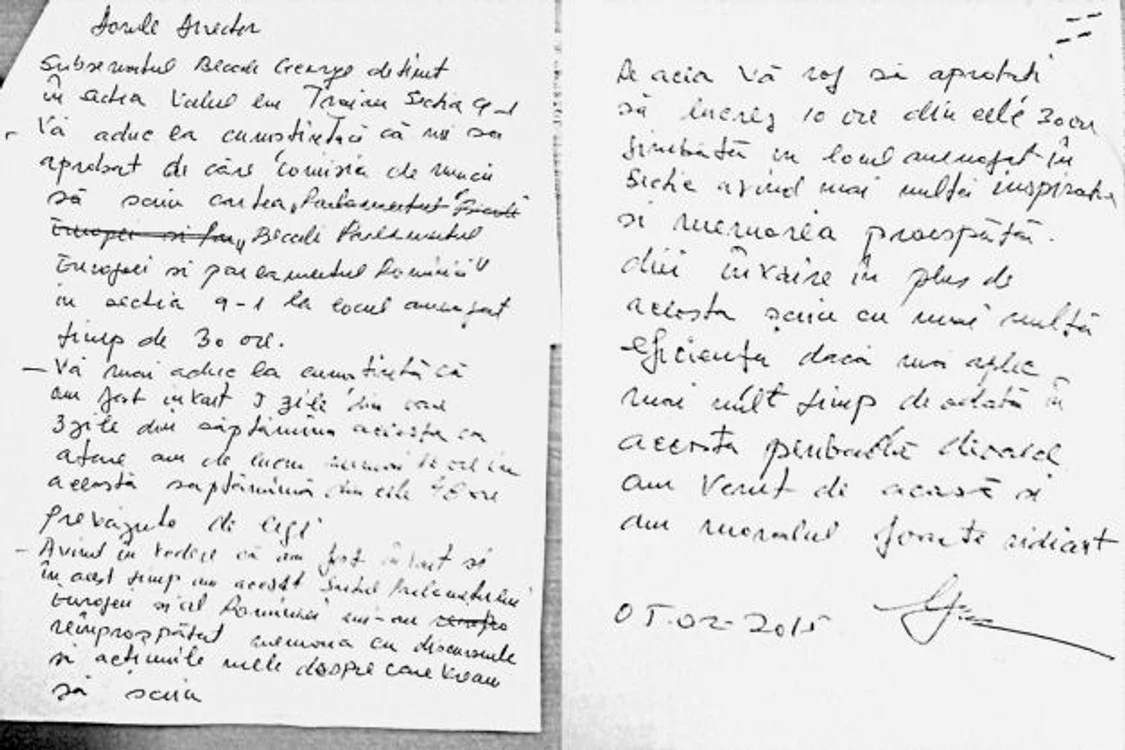 Domle Director
Subsemnatul Becali George detinut
în sectia Valul lui Traian Sectia 9-1
Vă aduc la cunostință că mi sa
aprobat de căre comisia de muncă
să scriu cartea, Parlamentul
Europei si „Becali Parlamentul
Europei si parlamentul României”
in sectia 9-1 la locul amenajat
timp de 30 ore.
– Vă mai aduc la cunostintă că
am fost invoit 5 zile din care
3 zile din săptămîna aceasta ca
atare am de lucru numai in
această saptămînă din cele 48 ore
prevăzute de lege
– Avînd in vedere că am fost invoit si
în acest timp am accesat Saitul Parlamentului
Europei si al României mi-am
reîmprospătat memoria cu discursurile
si actiunile mele despre care vreau
să scriu
De aceia Vă rog să aprobati
să lucrez 10 ore din cele 30 ore
simbătă in locul amenajat în
Sectie avînd mai multă inspiratie
si memoria proaspătă.
din învoire în plus de
aceasta scriu cu mai multă
eficientă dacă mă aplec
mai mult timp deodată în
aceasta perioadă deoarece
am venit de acasă si
am moralul foarte ridicat
05.02-2015